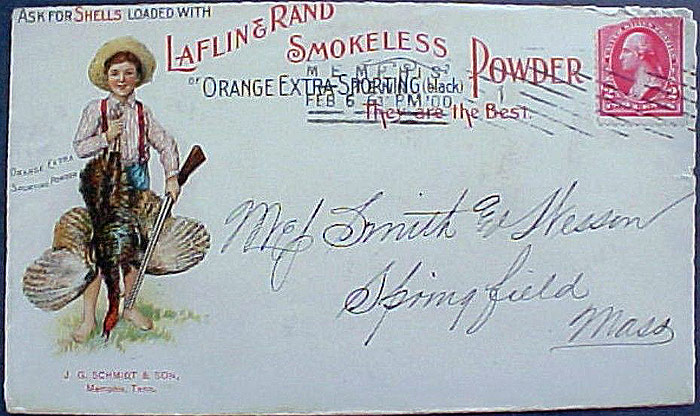 ASK FOR SHELLS LOADED WITH
LAFLIN & RAND
SMOKELESS POWDER
or ORANGE EXTRA SPORTING (black)
They are the Best.
MEMPHIS
FEB 6 PM '00
ORANGE EXTRA
SPORTING POWDER
Smith & Wesson
Springfield
Mass
J. G. SCHMIDT & SON,
Memphis, Tenn.